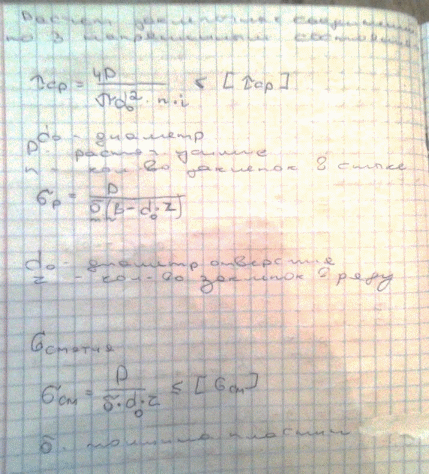 Расчет заклепочных соединений
по 3 напряженным состояниям
τср = 4P / πd₀² · n · i ≤ [τср]
d₀ - диаметр
P - растяг усилие
n - кол-во заклепок в стыке
σр = P / δ(b - d₀ · z)
d₀ - диаметр отверстия
z - кол-во заклепок в ряду
σсмятия
σсм = P / δ · d₀ · z ≤ [σсм]
δ - толщина пластин